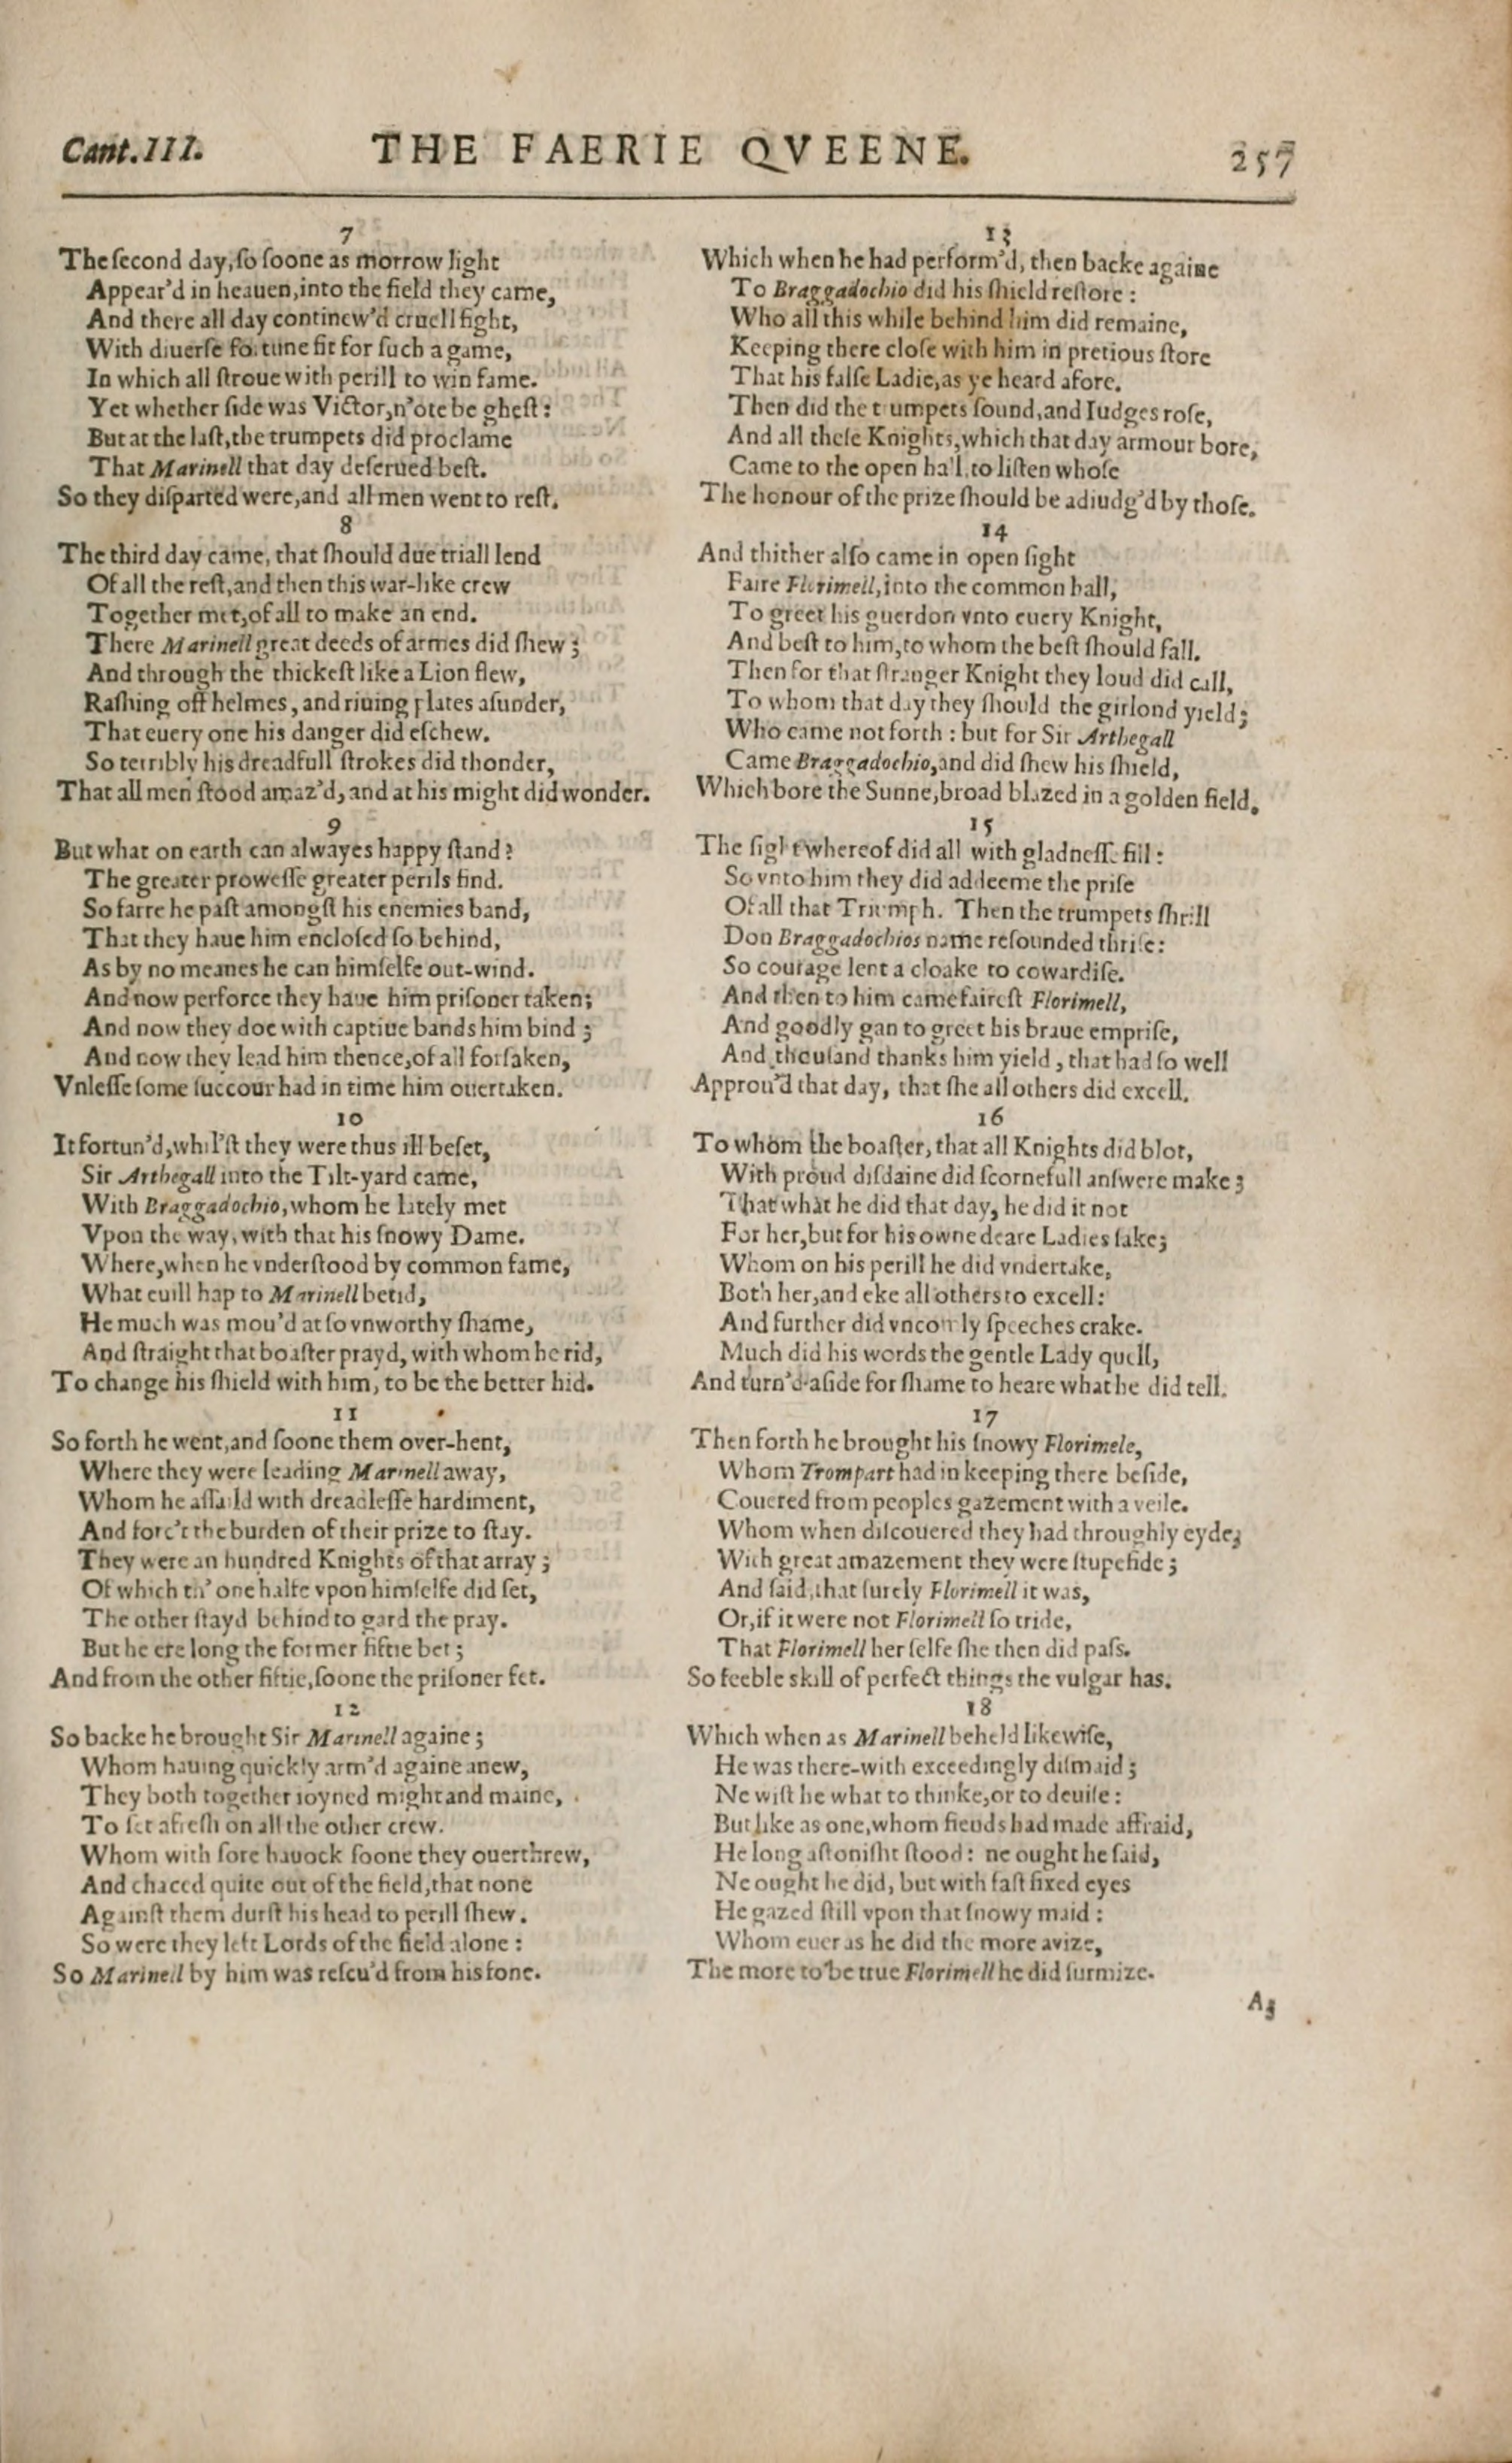 Cant. III. THE FAERIE QVEENE. 257
7
The ſecond day, ſo ſoone as morrow light
Appear'd in heauen, into the field they came,
And there all day continew'd cruell fight,
With diuerſe fortune fit for ſuch a game,
In which all ſtroue with perill to win fame.
Yet whether ſide was Victor, n'ote be gheſt:
But at the laſt, the trumpets did proclame
That Marinell that day deſerued beſt.
So they diſparted were, and all men went to reſt.
8
The third day came, that ſhould due triall lend
Of all the reſt, and then this war-like crew
Together met, of all to make an end.
There Marinell great deeds of armes did ſhew;
And through the thickeſt like a Lion flew,
Raſhing off helmes, and riuing plates aſunder,
That euery one his danger did eſchew.
So terribly his dreadfull ſtrokes did thonder,
That all men ſtood amaz'd, and at his might did wonder.
9
But what on earth can alwayes happy ſtand?
The greater proweſſe greater perils find.
So farre he paſt amongſt his enemies band,
That they haue him encloſed ſo behind,
As by no meanes he can himſelfe out-wind.
And now perforce they haue him priſoner taken;
And now they doe with captiue bands him bind;
And now they lead him thence, of all forſaken,
Vnleſſe ſome ſuccour had in time him ouertaken.
10
It fortun'd, whil'ſt they were thus ill beſet,
Sir Arthegall into the Tilt-yard came,
With Braggadochio, whom he lately met
Vpon the way, with that his ſnowy Dame.
Where, when he vnderſtood by common fame,
What euill hap to Marinell betid,
He much was mou'd at ſo vnworthy ſhame,
And ſtraight that boaſter prayd, with whom he rid,
To change his ſhield with him, to be the better hid.
11
So forth he went, and ſoone them over-hent,
Where they were leading Marinell away,
Whom he aſſaild with dreadleſſe hardiment,
And forc't the burden of their prize to ſtay.
They were an hundred Knights of that array;
Of which th' one halfe vpon himſelfe did ſet,
The other ſtayd behind to gard the pray.
But he ere long the former fiftie bet;
And from the other fiftie, ſoone the priſoner fet.
12
So backe he brought Sir Marinell againe;
Whom hauing quickly arm'd againe anew,
They both together ioyned might and maine,
To ſet afreſh on all the other crew.
Whom with ſore hauock ſoone they ouerthrew,
And chaced quite out of the field, that none
Againſt them durſt his head to perill ſhew.
So were they left Lords of the field alone:
So Marinell by him was reſcu'd from his fone.
13
Which when he had perform'd, then backe againe
To Braggadochio did his ſhield reſtore:
Who all this while behind him did remaine,
Keeping there cloſe with him in pretious ſtore
That his falſe Ladie, as ye heard afore.
Then did the trumpets ſound, and Iudges roſe,
And all theſe Knights, which that day armour bore,
Came to the open hall, to liſten whoſe
The honour of the prize ſhould be adiudg'd by thoſe.
14
And thither alſo came in open ſight
Faire Florimell, into the common hall,
To greet his guerdon vnto euery Knight,
And beſt to him, to whom the beſt ſhould fall.
Then for that ſtranger Knight they loud did call,
To whom that day they ſhould the girlond yield;
Who came not forth: but for Sir Arthegall
Came Braggadochio, and did ſhew his ſhield,
Which bore the Sunne, broad blazed in a golden field.
15
The ſight whereof did all with gladneſſe fill:
So vnto him they did addeeme the priſe
Of all that Triumph. Then the trumpets ſhrill
Don Braggadochios name reſounded thriſe:
So courage lent a cloake to cowardiſe.
And then to him came faireſt Florimell,
And goodly gan to greet his braue empriſe,
And thouſand thanks him yield, that had ſo well
Approu'd that day, that ſhe all others did excell.
16
To whom the boaſter, that all Knights did blot,
With proud diſdaine did ſcornefull anſwere make;
That what he did that day, he did it not
For her, but for his owne deare Ladies ſake;
Whom on his perill he did vndertake,
Both her, and eke all others to excell:
And further did vncomly ſpeeches crake.
Much did his words the gentle Lady quell,
And turn'd aſide for ſhame to heare what he did tell.
17
Then forth he brought his ſnowy Florimele,
Whom Trompart had in keeping there beſide,
Couered from peoples gazement with a veile.
Whom when diſcouered they had throughly eyde,
With great amazement they were ſtupefide;
And ſaid, that ſurely Florimell it was,
Or, if it were not Florimell ſo tride,
That Florimell her ſelfe ſhe then did paſs.
So feeble skill of perfect things the vulgar has.
18
Which when as Marinell beheld likewiſe,
He was there-with exceedingly diſmaid;
Ne wiſt he what to thinke, or to deuiſe:
But like as one, whom fiends had made affraid,
He long aſtoniſht ſtood: ne ought he ſaid,
Ne ought he did, but with faſt fixed eyes
He gazed ſtill vpon that ſnowy maid:
Whom euer as he did the more avize,
The more to be true Florimell he did ſurmize.
As